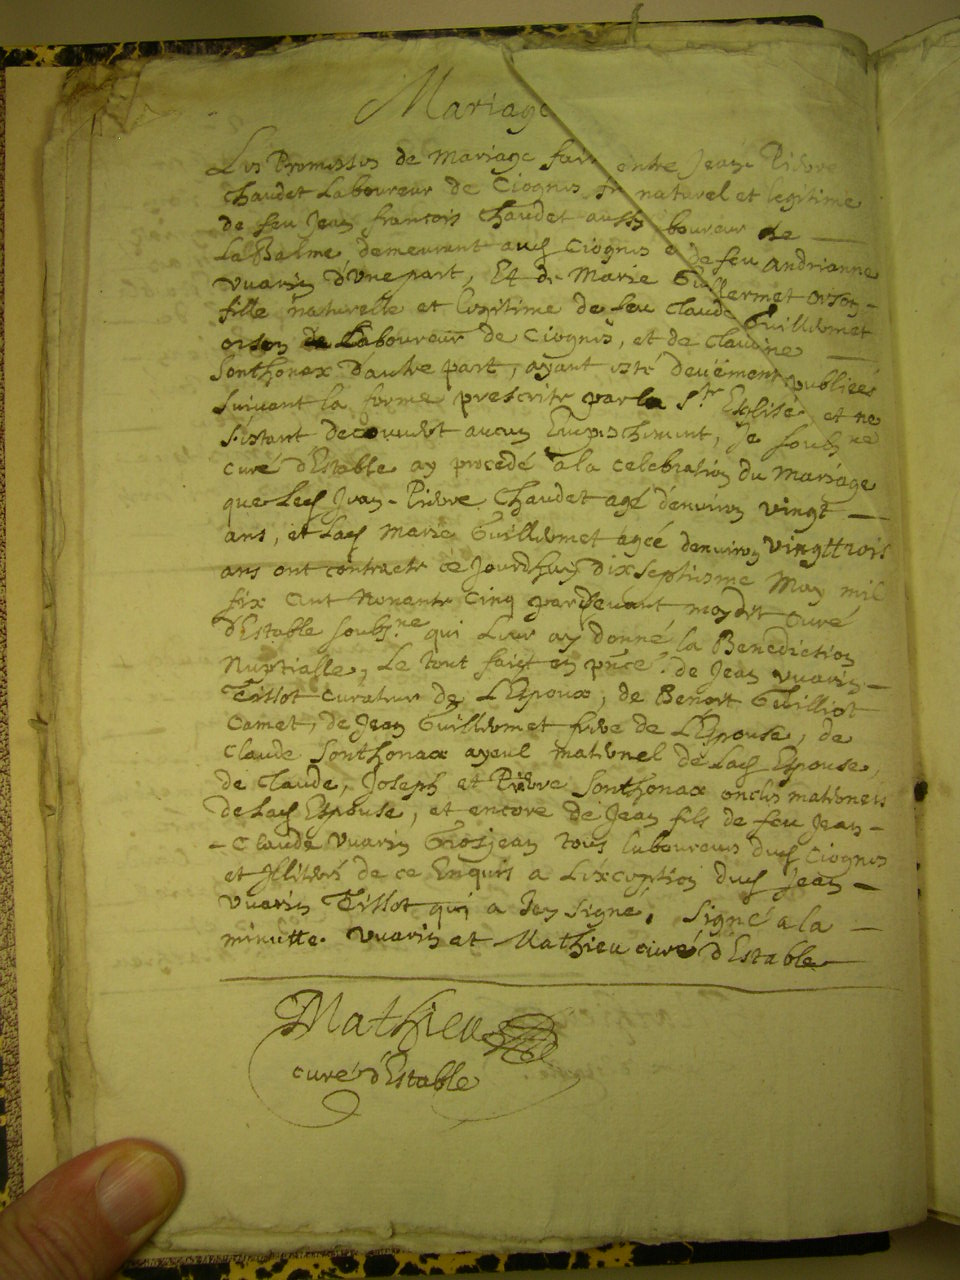 Mariage
Les Promesses de Mariage fai entre Jean Pierre
Chaudet Laboureur de Ciognis fi naturel et legitime
de feu Jean francois Chaudet aussy boureur de
La Balme, demeurant aud Ciognis e de feu Andrianne
vuarin d'Une part, Et de Marie Guillermet orson
fille naturelle et legitime de feu Claude Guillermet
orson Laboureur de Ciognis, et de Claudine
Sonthonax d'autre part, ayant esté deuëment publieés
suivant la forme prescrite par la Ste Eglise et ne
s'estant decouvert aucun Empeschement, Je soubne
curé d'Estable ay procedé a la celebration du Mariage
que Led Jean-Pierre Chaudet agé denviron vingt
ans, et Lad Marie Guillermet ageé denviron vingttrois
ans ont contracté ce Jourdhuy dix septiesme May mil
six cent nonante cinq pardevant moydit curé
d'Estable soubne qui leur ay donné la Benediction
Nuptialle, Le tout fait en pnce de Jean vuarin
Tillot curateur de L'Espoux, de Benoit Guilliot
Camet, de Jean Guillermet frere de L'Espouse, de
Claude Sonthonax ayeul maternel de Lad Espouse,
de Claude, Joseph et Pierre Sonthonax oncles maternels
de Lad Espouse, et encore de Jean fils de feu Jean-
-Claude vuarin Grosjean tous laboureurs dud Ciognis
et Illiterés de ce Enquis a L'exception dud Jean
vuarin Tillot qui a Icy signé, signé a la
minutte. vuarin et Mathieu curé d'Estable
Mathieu
curé d'Estable